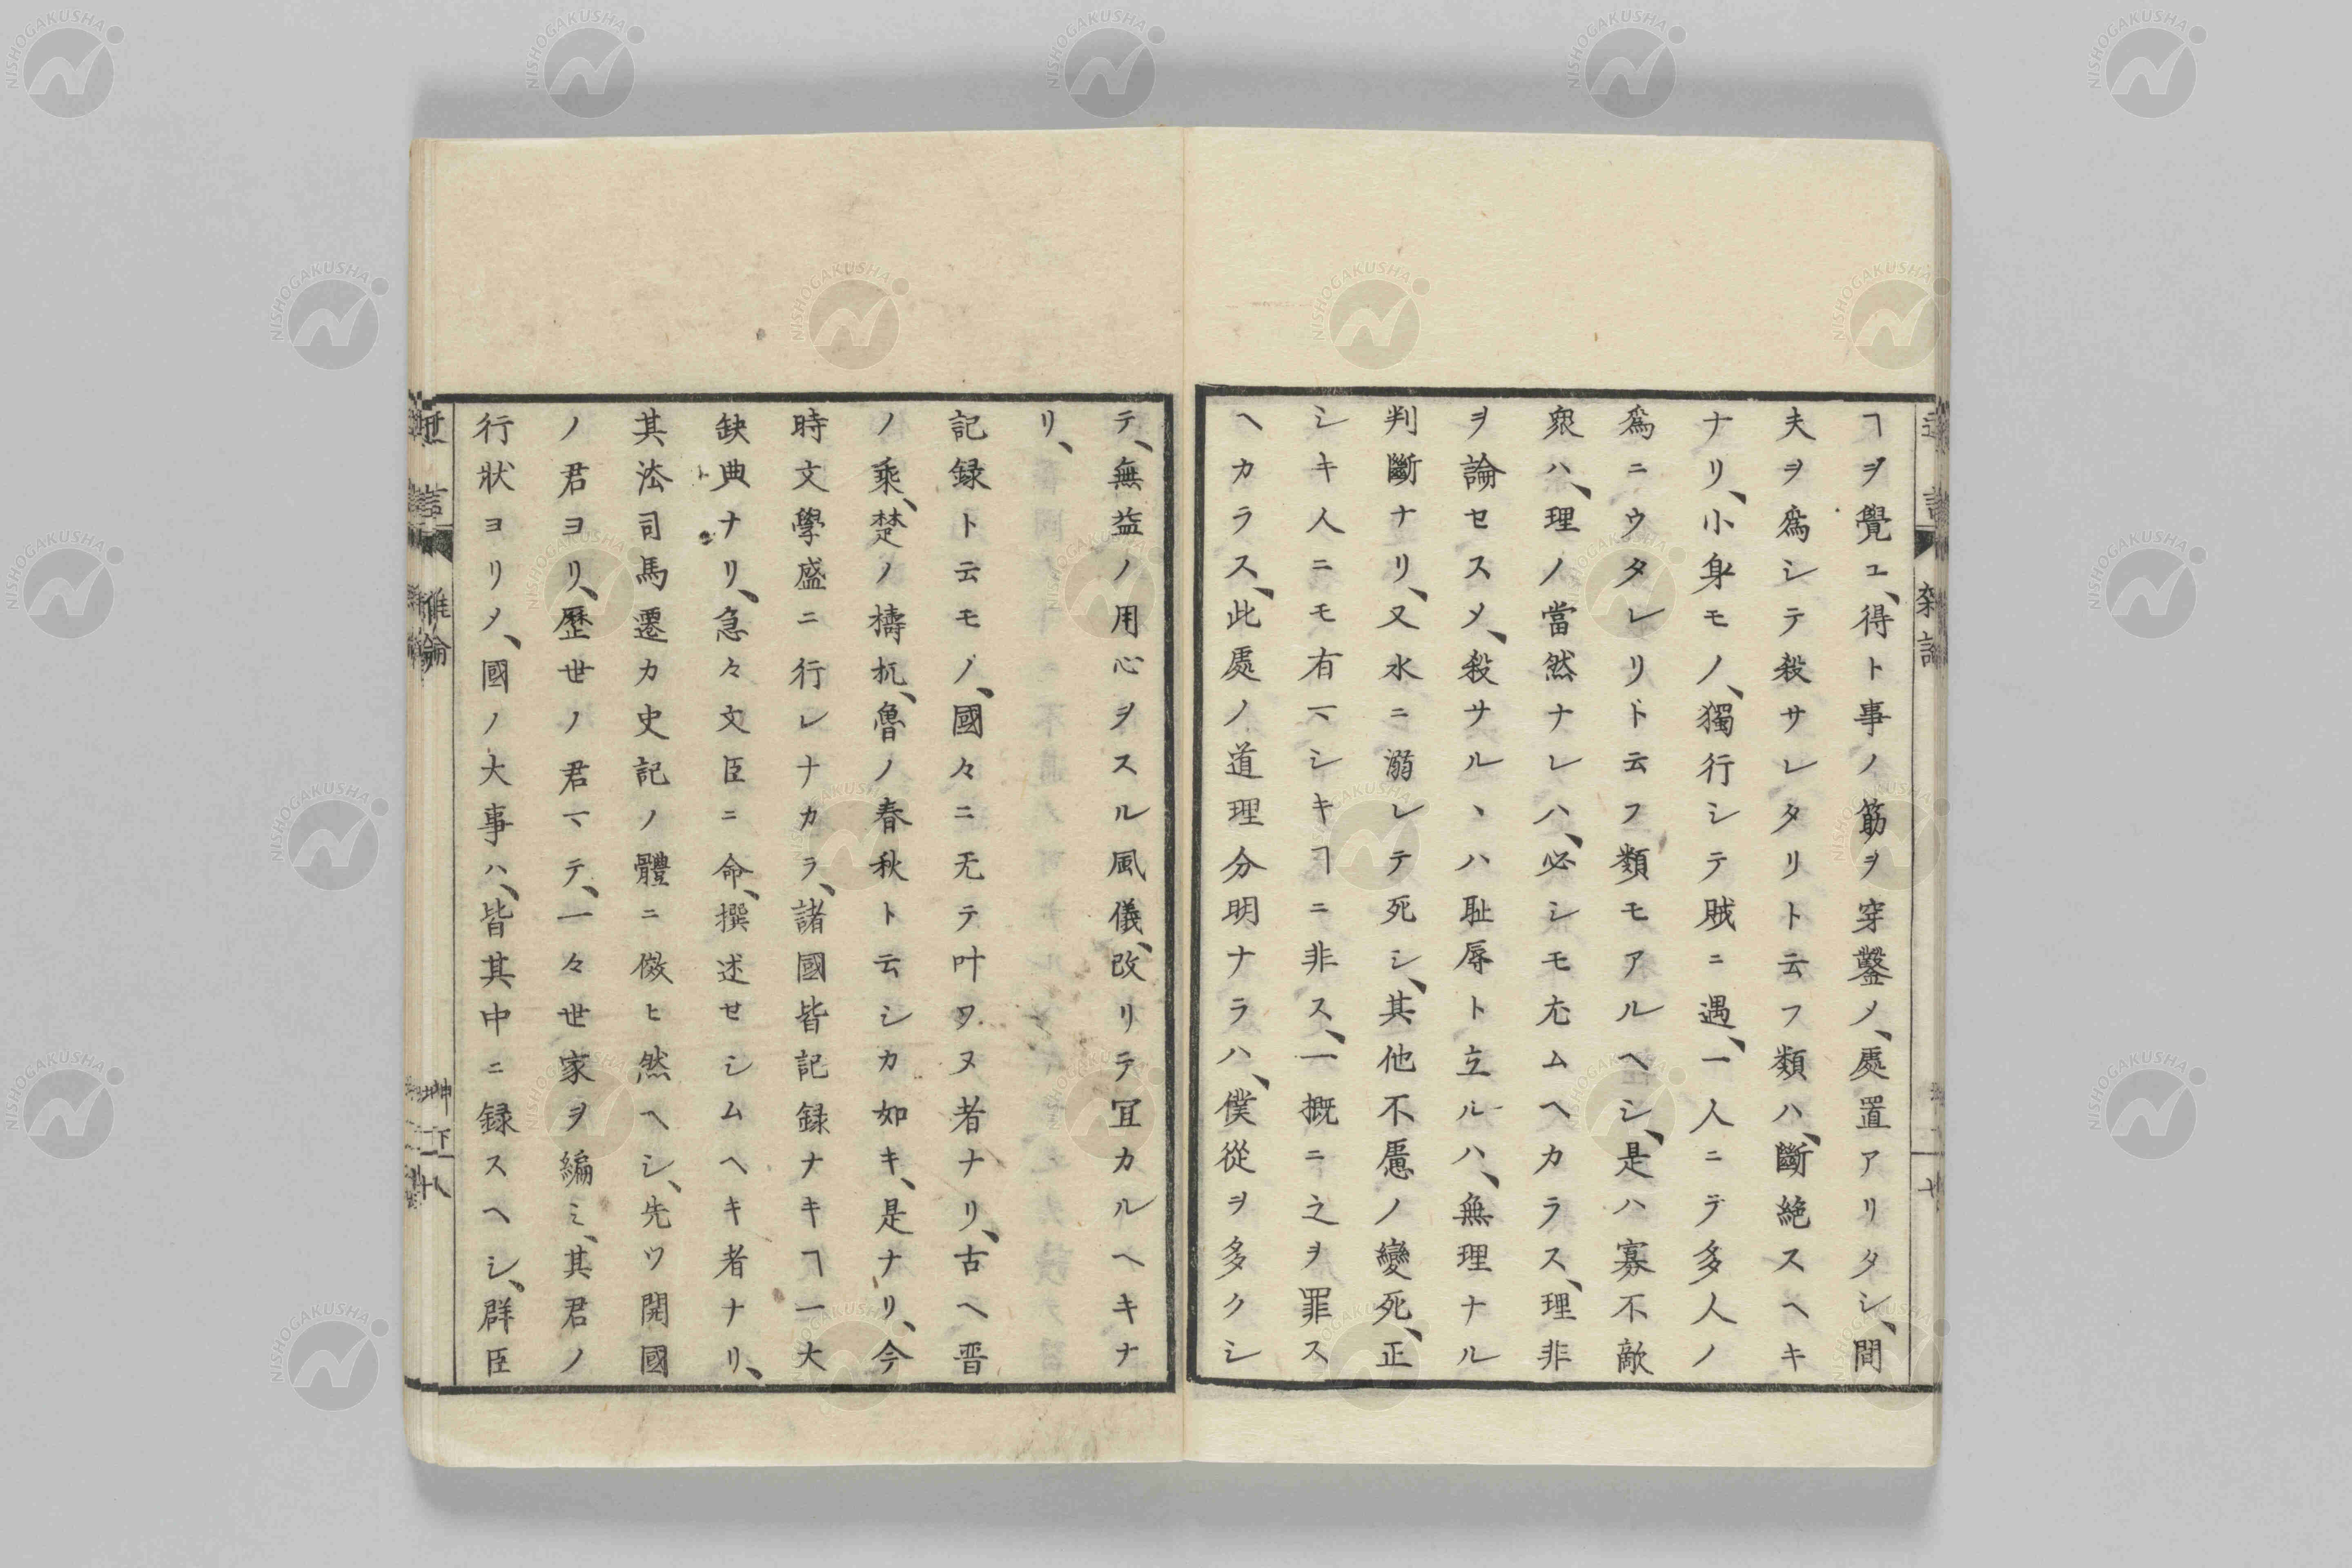 ヿヲ覺ユ、得ト事ノ筋ヲ穿鑿メ、處置アリタシ、間
夫ヲ爲シテ殺サレタリト云フ類ハ、斷絶スヘキ
ナリ、小身モノ、獨行シテ賊ニ遇、一人ニデ多人ノ
爲ニウタレリト云フ類モアルヘシ、是ハ寡不敵
衆ハ、理ノ當然ナレハ、必シモ尤ムヘカラス、理非
ヲ論セスメ、殺サルヽハ耻辱ト立ルハ、無理ナル
判斷ナリ、又水ニ溺レテ死シ、其他不慮ノ變死、正
シキ人ニモ有マシキヿニ非ス、一概ニ之ヲ罪ス
ヘカラス、此處ノ道理分明ナラハ、僕從ヲ多クシ
テ、無益ノ用心ヲスル風儀、改リテ冝カルヘキナ
リ、
記録ト云モノ、國々ニ无テ叶ワヌ者ナリ、古ヘ晋
ノ乘、楚ノ檮杌、魯ノ春秋ト云シカ如キ、是ナリ、今
時文學盛ニ行レナカラ、諸國皆記録ナキヿ一大
缺典ナリ、急々文臣ニ命、撰述セシムヘキ者ナリ、
其法司馬遷カ史記ノ體ニ倣ヒ然ヘシ、先ツ開國
ノ君ヨリ、歴世ノ君マテ、一々世家ヲ編ミ、其君ノ
行狀ヨリメ、國ノ大事ハ、皆其中ニ録スヘシ、群臣
NISHOGAKUSHA